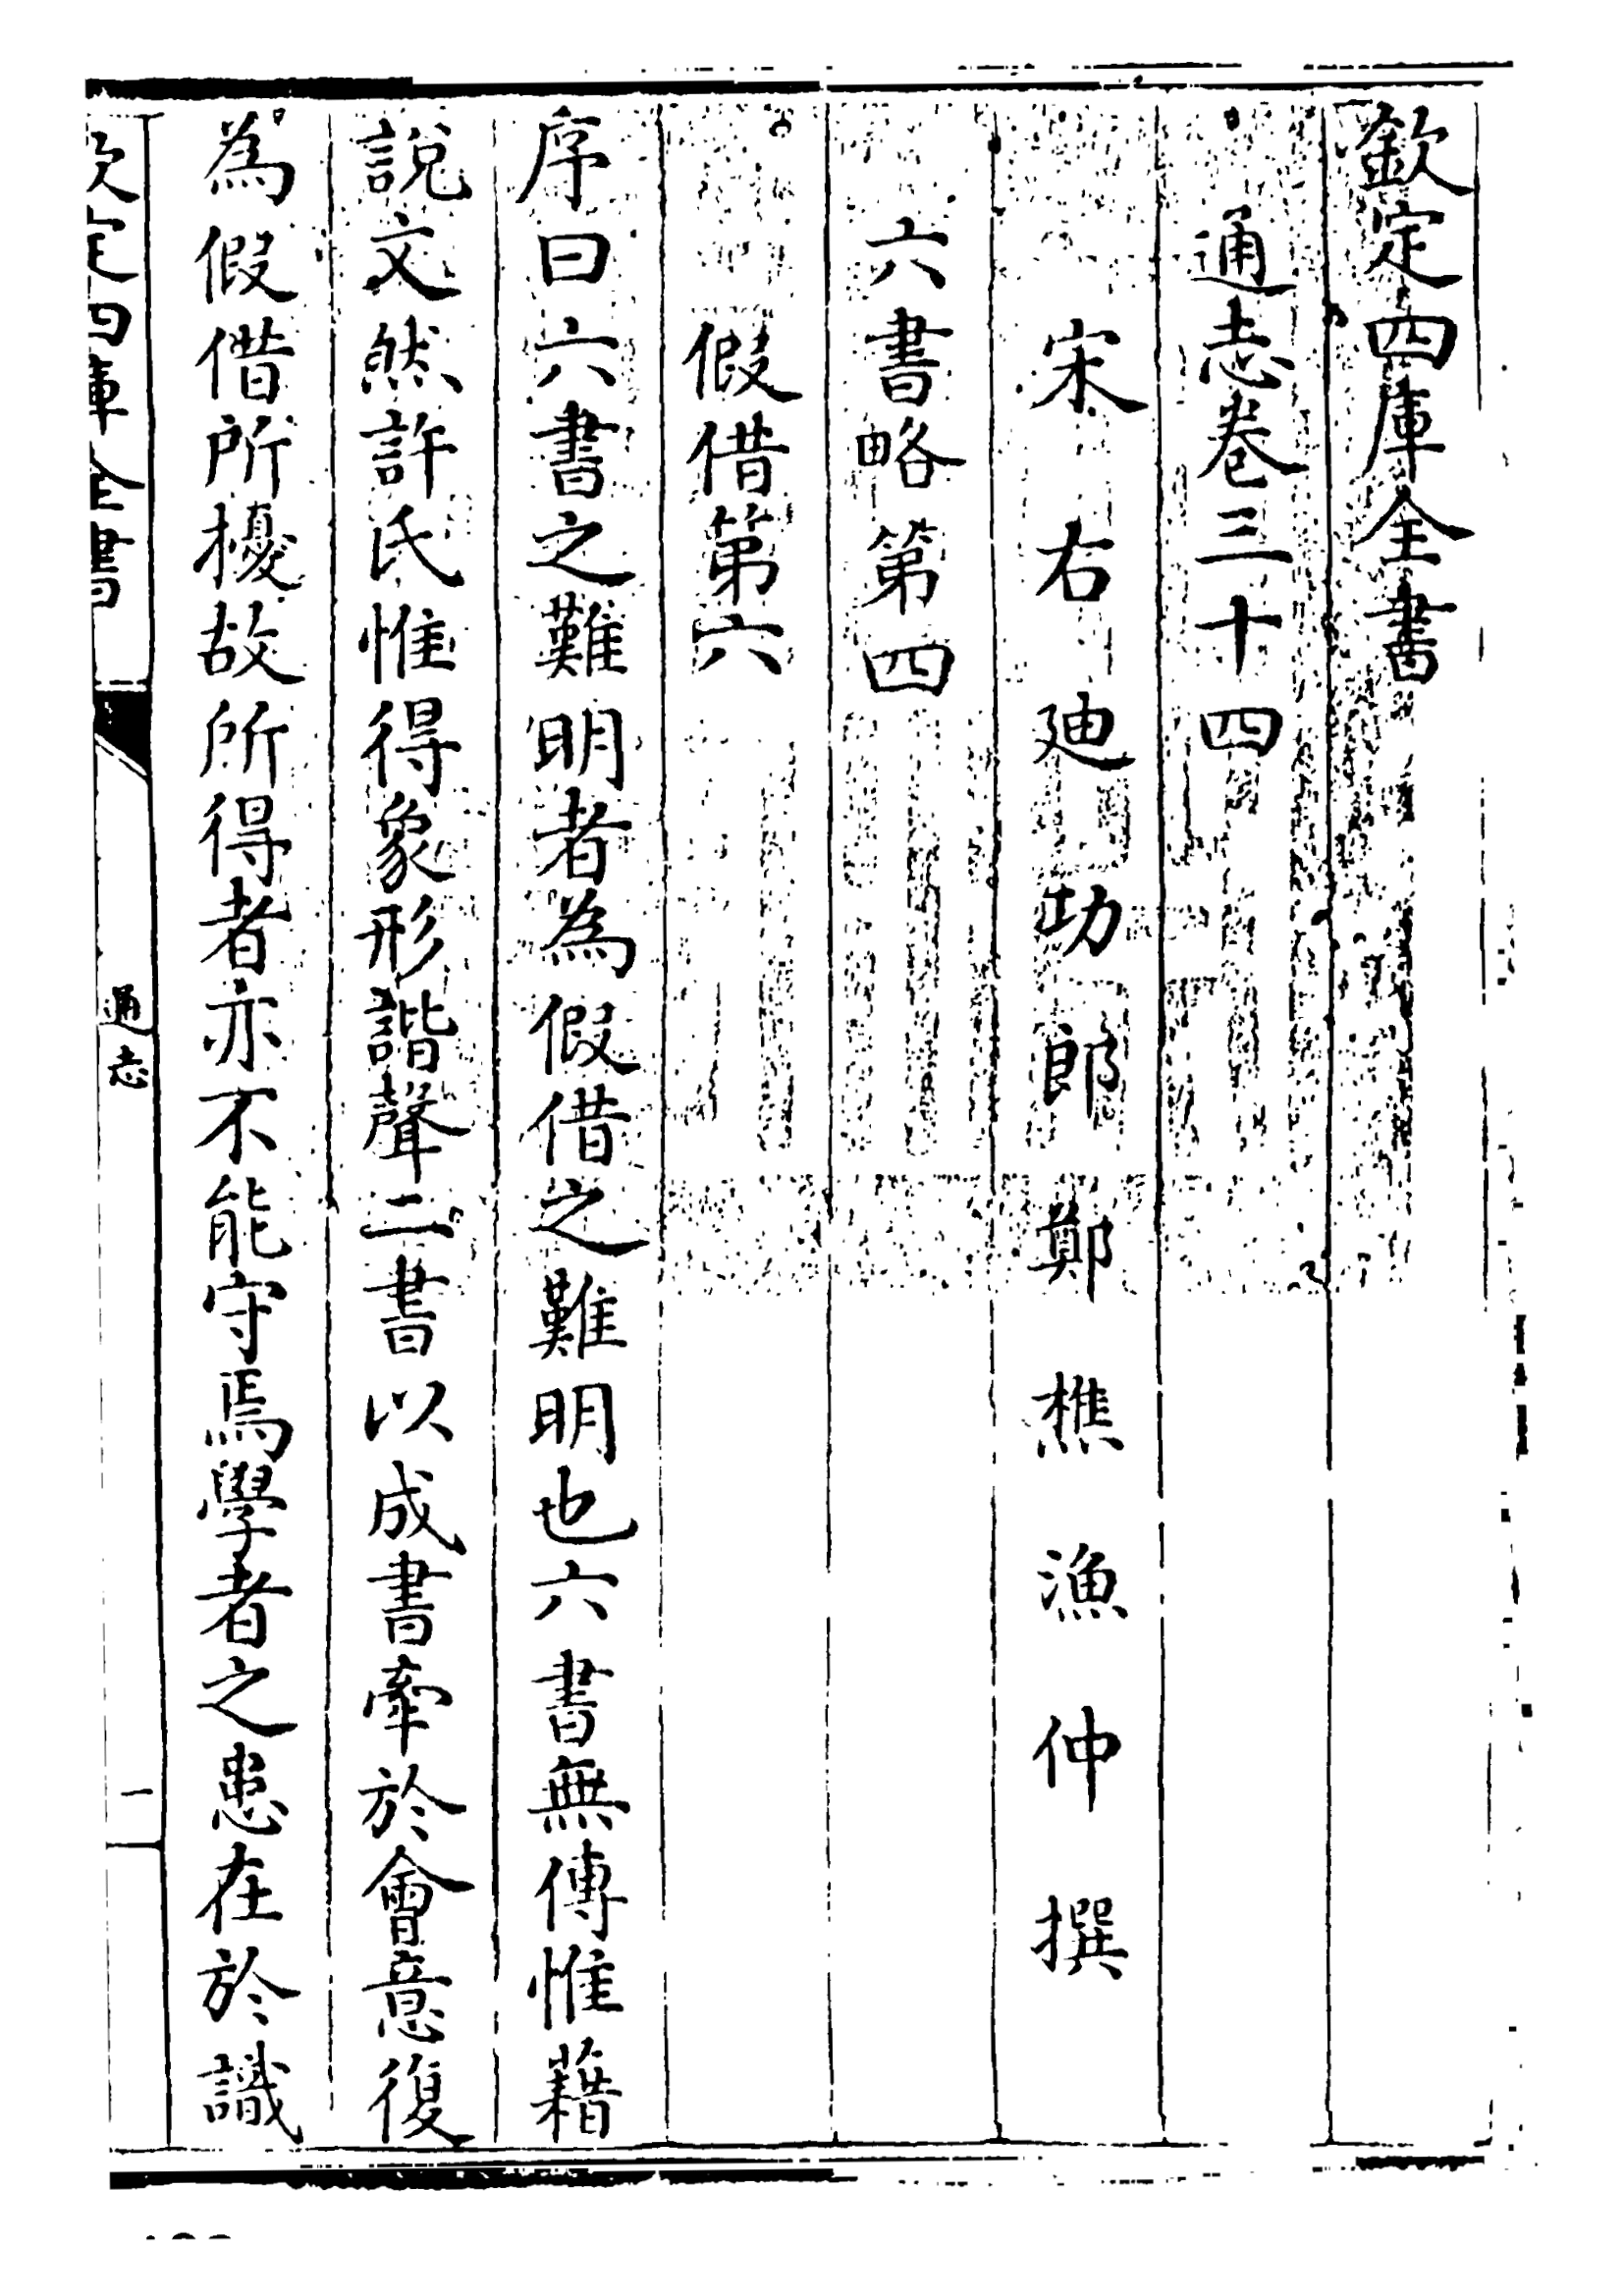 欽定四庫全書
通志卷三十四
宋右廸功郎鄭樵漁仲撰
六書略第四
假借第六
序曰六書之難明者為假借之難明也六書無傳惟藉
說文然許氏惟得象形諧聲二書以成書牽於會意復
為假借所擾故所得者亦不能守焉學者之患在於識
欽定四庫全書
通志
一